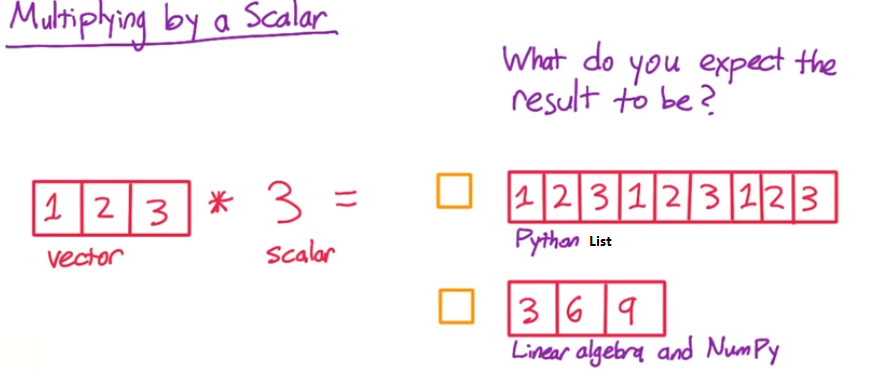 Multiplying by a Scalar
What do you expect the
result to be?
1 2 3 * 3 =
vector
scalar
1 2 3 1 2 3 1 2 3
Python List
3 6 9
Linear algebra and NumPy